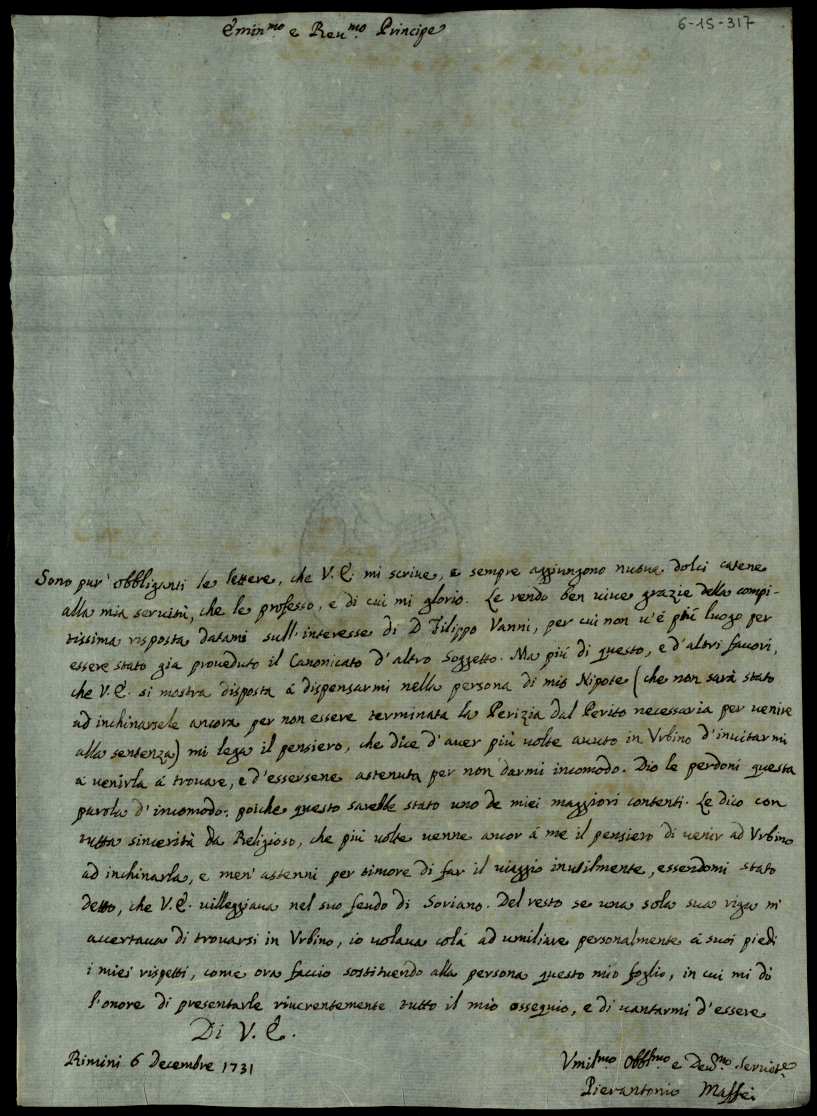 6-15-317
Emin.mo e Reu.mo Principe
Sono pur' obbliganti le lettere, che V. E. mi scriue, e sempre aggiungono nuoua dolci catene
alla mia seruitù, che le professo, e di cui mi glorio. Le rendo ben uiue grazie della compi-
tissima risposta datami sull'interesse di D Filippo Vanni, per cui non u'é più luogo per
essere stato gia proueduto il Canonicato d'altro Soggetto. Ma più di questo, e d'altri fauori,
che V. E. si mostra disposta á dispensarmi nella persona di mio Nipote (che non sarà stato
ad inchinarsele ancora per non essere terminata la Perizia dal Perito necessaria per uenire
alla sentenza) mi lega il pensiero, che dice d'auer più uolte auuto in Vrbino d'inuitarmi
a uenirla á trouare, e d'essersene astenuta per non darmi incomodo. Dio le perdoni questa
parola d'incomodo: poiche questo sarebbe stato uno de miei maggiori contenti. Le dico con
tutta sincerità da Religioso, che più uolte uenne ancor á me il pensiero di uenir ad Vrbino
ad inchinarla, e men' astenni per timore di far il uiaggio inutilmente, essendomi stato
detto, che V. E. uilleggiaua nel suo feudo di Soriano. Del resto se una sola sua riga m'
accertaua di trouarsi in Vrbino, io uolaua colá ad umiliare personalmente á suoi piedi
i miei rispetti, come ora faccio sostituendo alla persona questo mio foglio, in cui mi dò
l'onore di presentarle riuerentemente tutto il mio ossequio, e di uantarmi d'essere
Di V. E.
Rimini 6 Decembre 1731
Vmil.mo Obbl.mo e Deu.mo Seruitre
Pierantonio Maffei